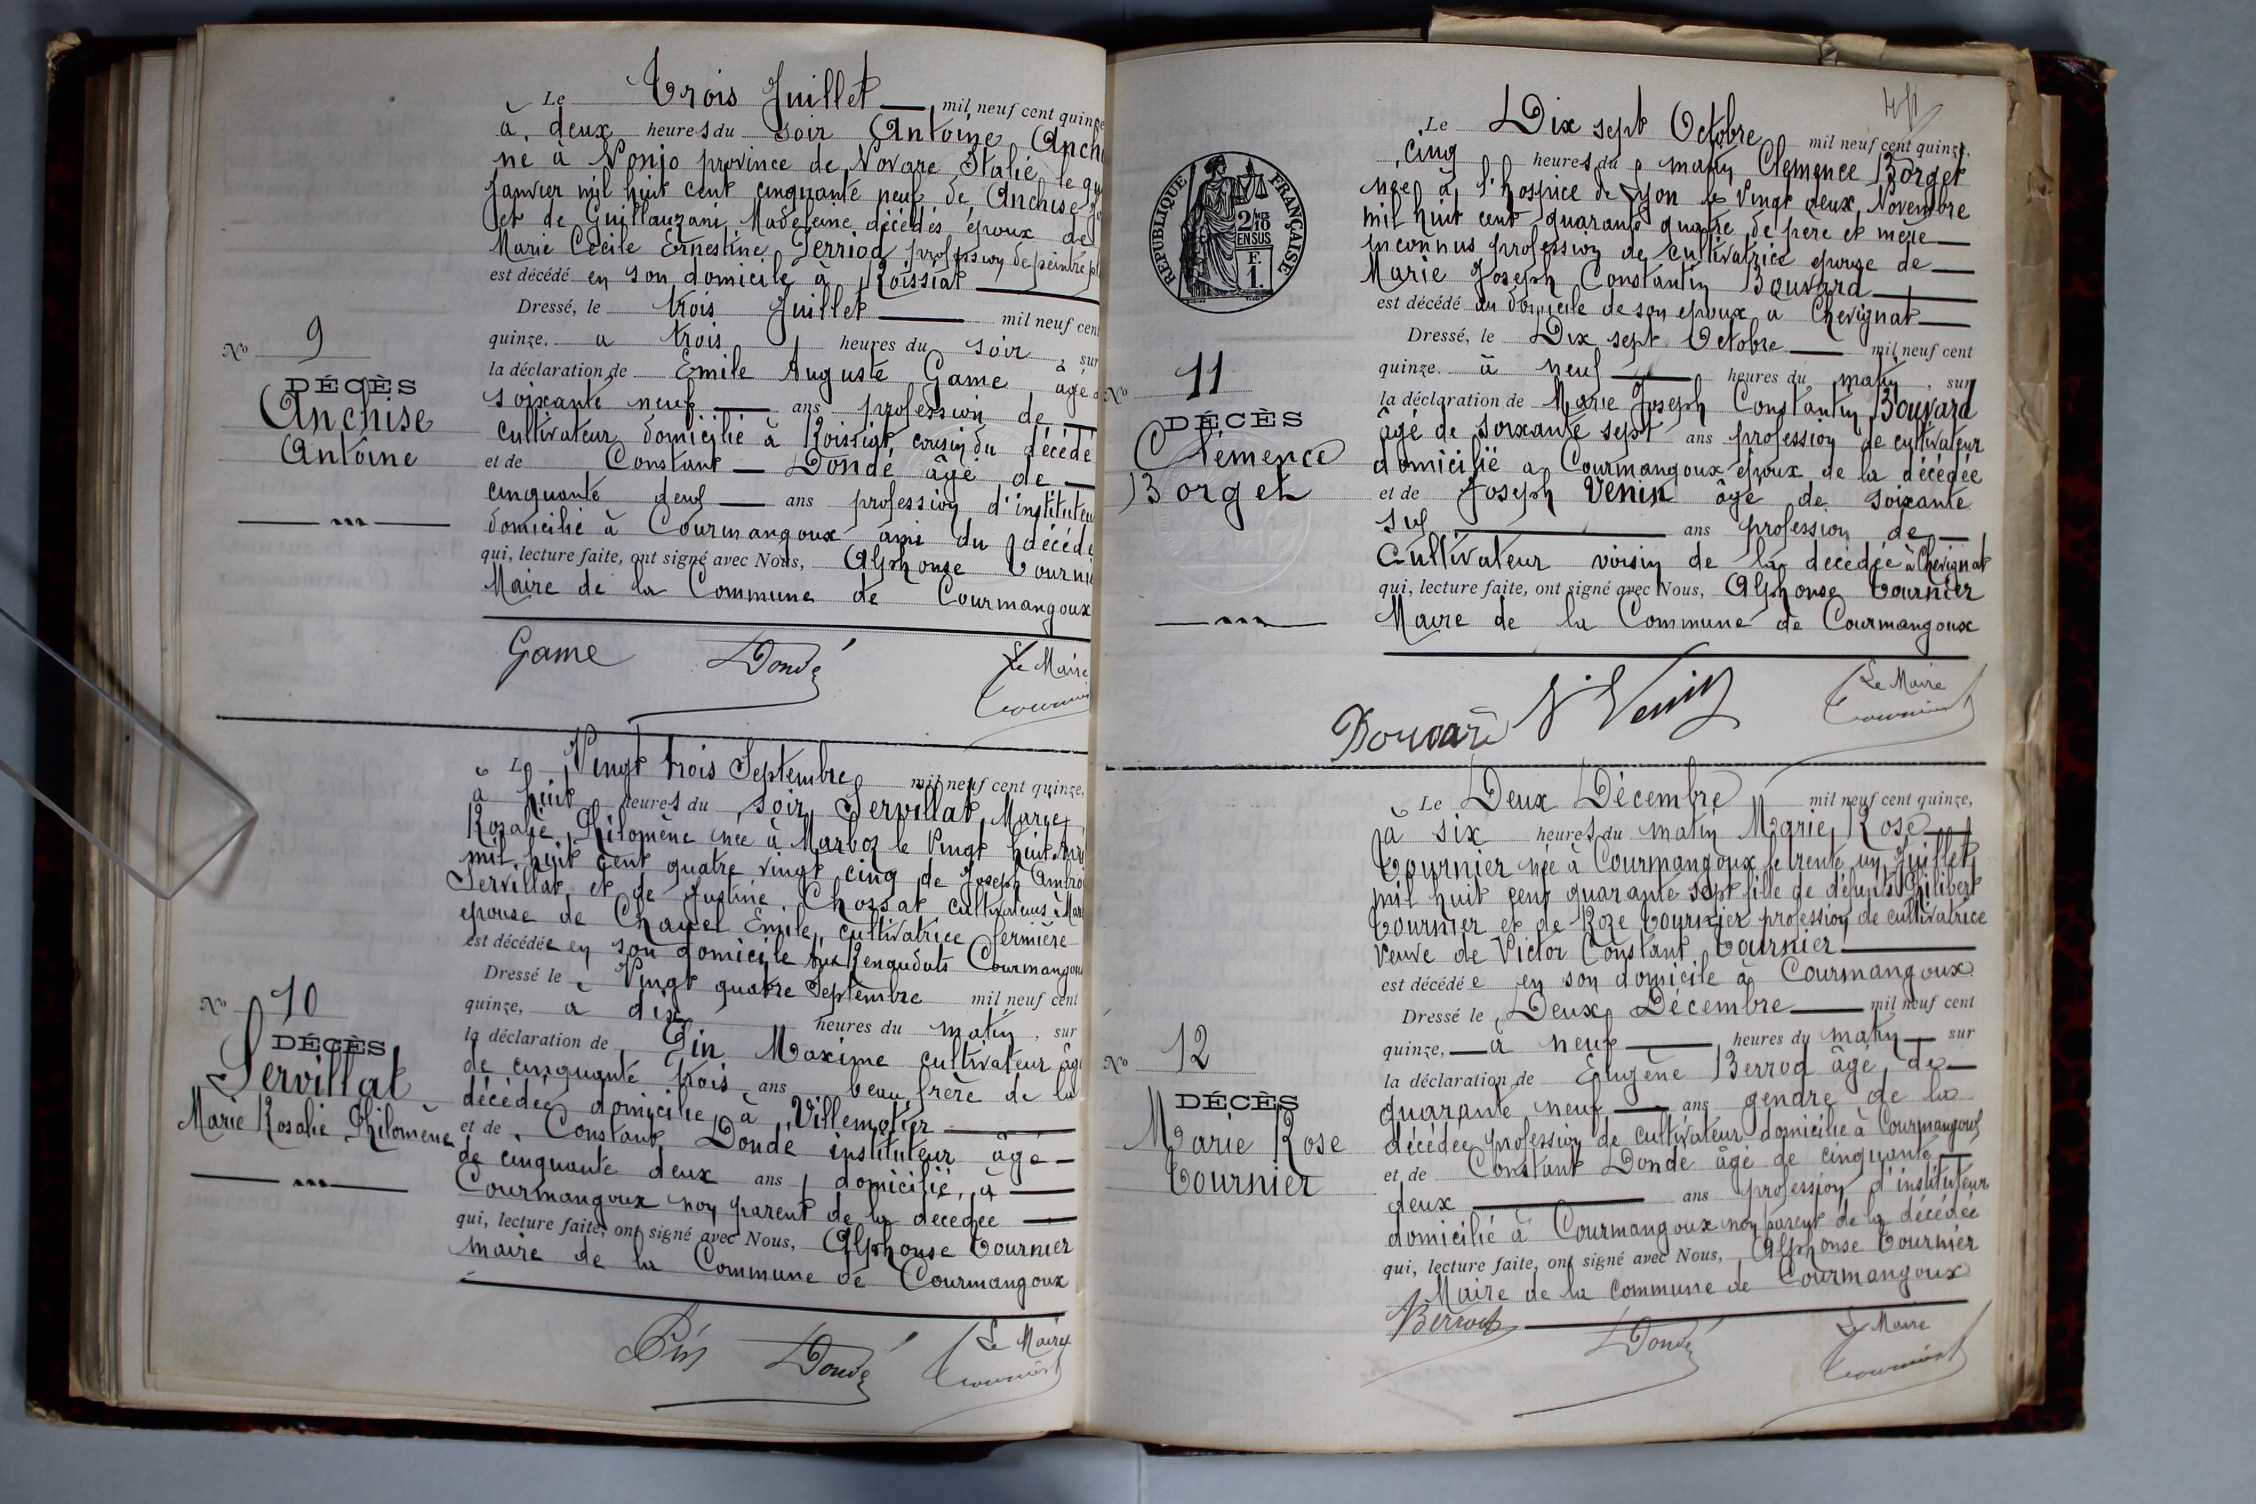 Le Trois Juillet mil neuf cent quinze
à deux heures du soir Antoine Anch
né à Nonio province de Novare Italie, le
Janvier mil huit cent cinquante neuf de Anchise
et de Guillauzani Madeleine décédés époux de
Marie Cécile Ernestine Perriod profession de peintre
est décédé en son domicile à Roissiat
Dressé, le trois Juillet mil neuf cen
quinze. a trois heures du soir, sur
la déclaration de Emile Auguste Game âgé
soixante neuf ans profession de
cultivateur domicilié à Roissiat, cousin du décédé
et de Constant Dondé âgé de
cinquante deux ans profession d'instituteu
domicilié à Courmangoux ami du décédé
qui, lecture faite, ont signé avec Nous, Alphonse Tourni
Maire de la Commune de Courmangoux
No 9
DÉCÈS
Anchise
Antoine
Game Dondé Le Maire
Tournier
Le Vingt trois Septembre mil neuf cent quinze,
à huit heures du soir, Servillat, Marie
Rosalie, Philomène née à Marboz le Vingt huit Avr
mil huit cent quatre vingt cinq de Joseph Ambroi
Servillat et de Justine Chossat cultivateurs à Mar
épouse de Chanel Emile, cultivatrice fermière
est décédée en son domicile aux Courmangou
Dressé le Vingt quatre Septembre mil neuf cent
quinze, à dix heures du matin, sur
la déclaration de Pin Maxime cultivateur âgé
de cinquante trois ans beau frère de la
décédée domicilié à Villemotier
et de Constant Dondé instituteur âgé
de cinquante deux ans domicilié, à
Courmangoux non parent de la décédée
qui, lecture faite, ont signé avec Nous, Alphonse Tournier
maire de la Commune de Courmangoux
No 10
DÉCÈS
Servillat
Marie Rosalie Philomène
Pin Dondé Le Maire
Tournier
44
RÉPUBLIQUE FRANÇAISE
2/10 EN SUS
F.
1.
Le Dix sept Octobre mil neuf cent quinze,
cinq heures du matin Clemence Borget
née à l'hospice de Lyon le Vingt deux Novembre
mil huit cent quarante quatre de père et mère
inconnus profession de cultivatrice épouse de
Marie Joseph Constantin Bouvard
est décédé au domicile de son epoux a Chevignat
Dressé, le Dix sept Octobre mil neuf cent
quinze. à neuf heures du matin, sur
la déclaration de Marie Joseph Constantin Bouvard
âgé de soixante sept ans profession de cultivateur
domicilié a Courmangoux époux de la décédée
et de Joseph Venin âgé de soixante
six ans profession de
Cultivateur voisin de la décédée à Chevignat
qui, lecture faite, ont signé avec Nous, Alphonse Tournier
Maire de la Commune de Courmangoux
No 11
DÉCÈS
Clémence
Borget
Bouvard J. Venin Le Maire
Tournier
Le Deux Décembre mil neuf cent quinze,
à six heures du matin Marie Rose
Tournier née à Courmangoux le trente un Juillet
mil huit cent quarante sept fille de défunts Philibert
Tournier et de Roze Tournier profession de cultivatrice
veuve de Victor Constant Tournier
est décédée en son domicile à Courmangoux
Dressé le Deux Décembre mil neuf cent
quinze, à neuf heures du matin sur
la déclaration de Eugène Berrod âgé de
quarante neuf ans gendre de la
décédée profession de cultivateur domicilié à Courmangoux
et de Constant Dondé âgé de cinquante
deux ans profession d'instituteur
domicilié à Courmangoux non parent de la décédée
qui, lecture faite, ont signé avec Nous, Alphonse Tournier
Maire de la commune de Courmangoux
No 12
DÉCÈS
Marie Rose
Tournier
Berrod Dondé Le Maire
Tournier